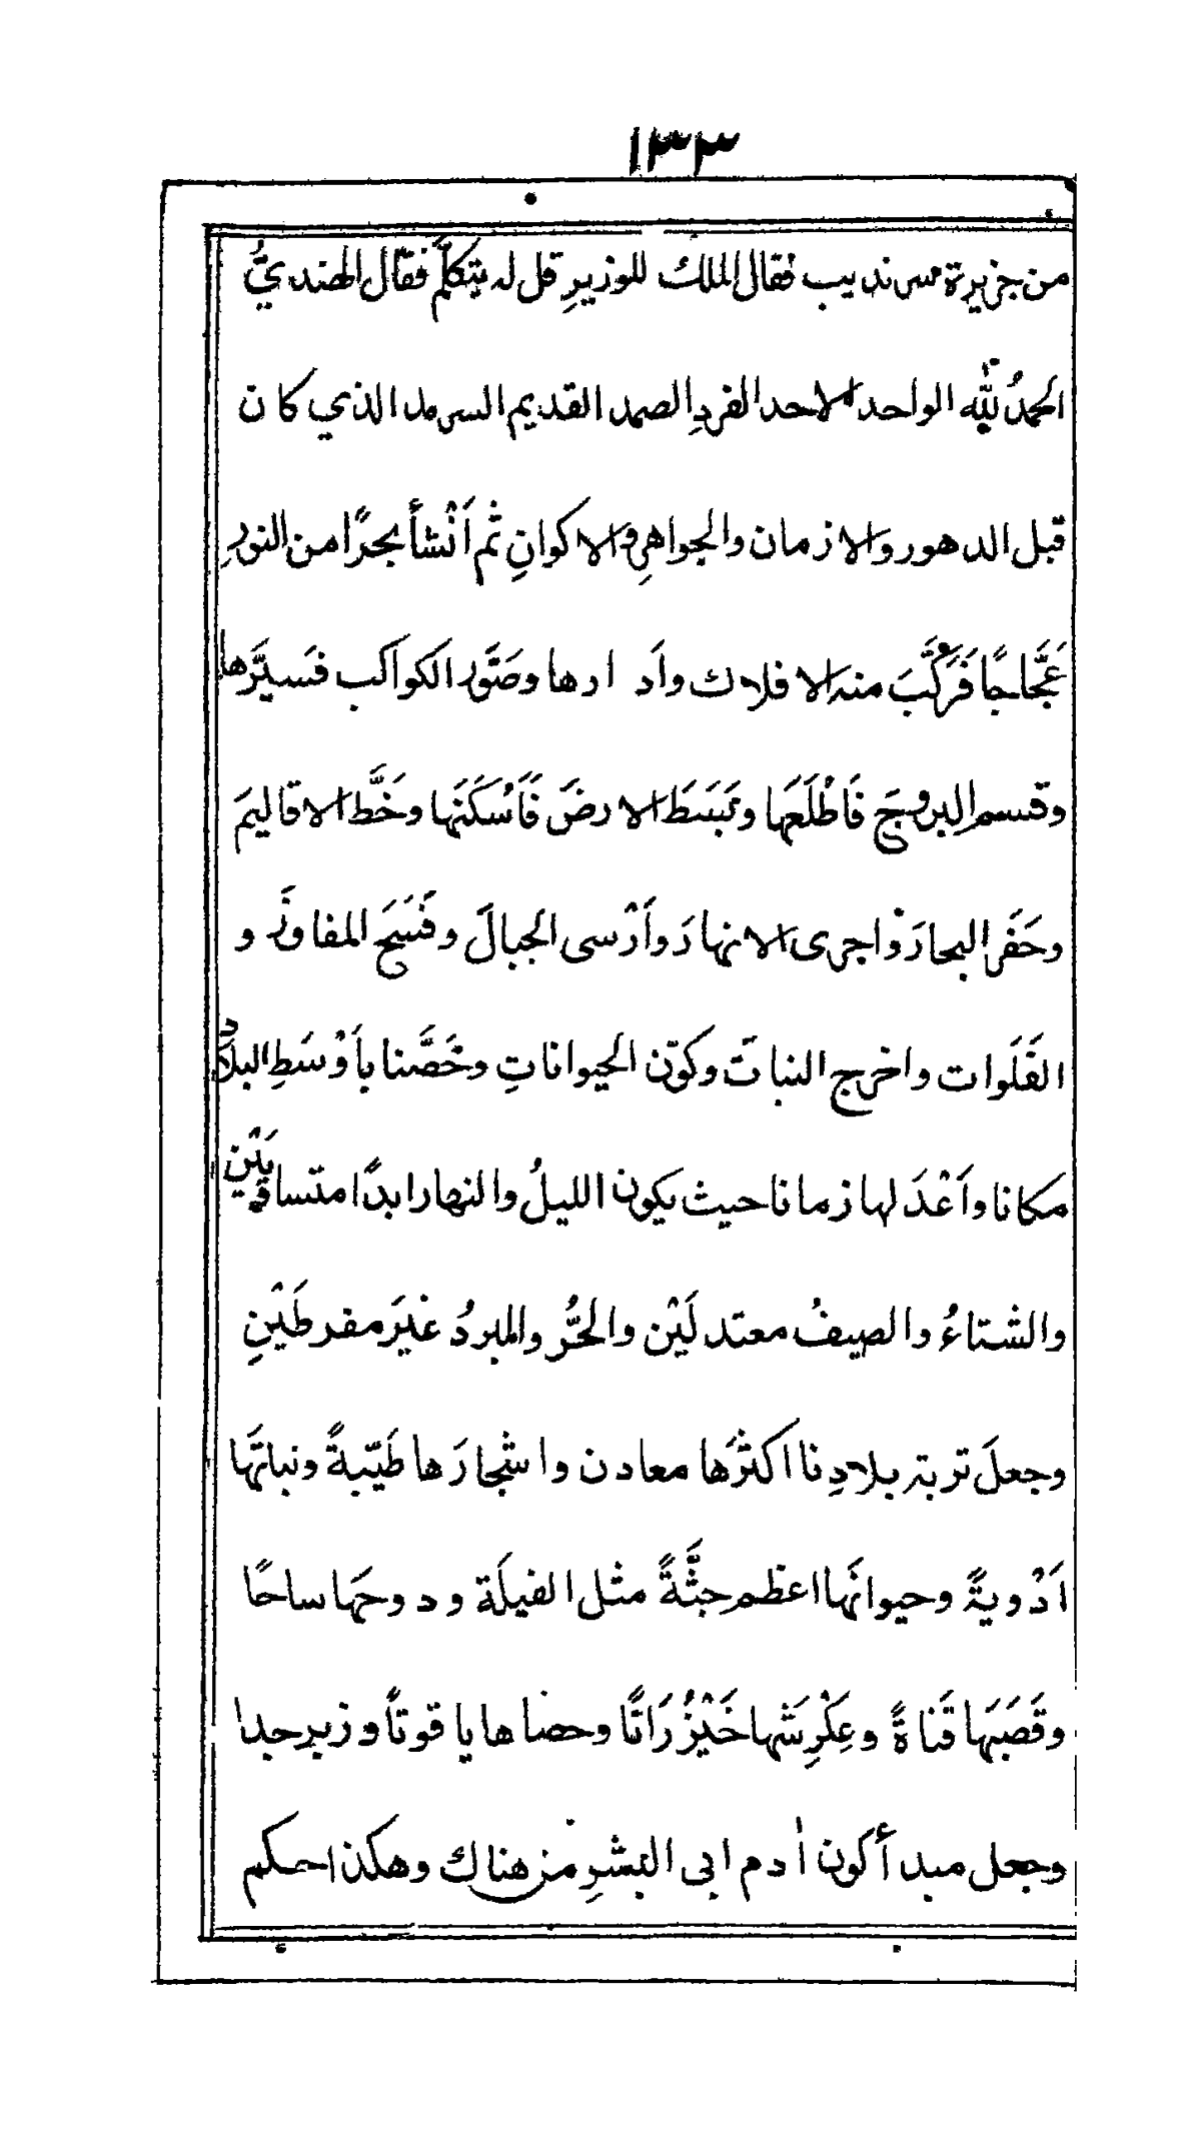 ١٣٣
من جزيرة سرنديب فقال الملك للوزيرِ قل له يتكلّم فقال الهنديُّ
الحمدُ للّٰه الواحد الاحد الفردِ الصمد القديم السرمد الذي كان
قبل الدهور والازمان والجواهرِ والاكوانِ ثم اَنْشأ بحرًا من النورِ
عَجَّاجًا فَرَكَّبَ منه الافلاك واَدارها وصَوَّر الكواكب فسيَّرها
وقسم البروجَ فَاَطْلَعَها وبَسَطَ الارضَ فَاَسْكَنَها وخَطَّ الاقاليمَ
وحَفَر البحارَ واجرى الانهارَ واَرْسى الجبالَ وفَسَحَ المفاوزَ و
الفَلَوات واخرج النباتَ وكوّن الحيواناتِ وخَصَّنا باَوْسَطِ البلادِ
مكانا واَعْدَلها زمانا حيث يكون الليلُ والنهار ابدًا متساوِيَيْن
والشتاءُ والصيفُ معتدلَيْن والحَرُّ والبردُ غيرَ مفرطَيْنِ
وجعلَ تربة بلادِنا اكثرَها معادن واشجارَها طَيّبةً ونباتَها
اَدْوِيةً وحيوانَها اعظم جثَّةً مثل الفيلَة ودوحَها ساجًا
وقَصَبَها قَناةً وعِكْرِشَها خَيْزُرَانًا وحصاها ياقوتاً وزبرجدا
وجعل مبدأ كون اٰدم ابى البَشرِ من هناك وهكذا حكم